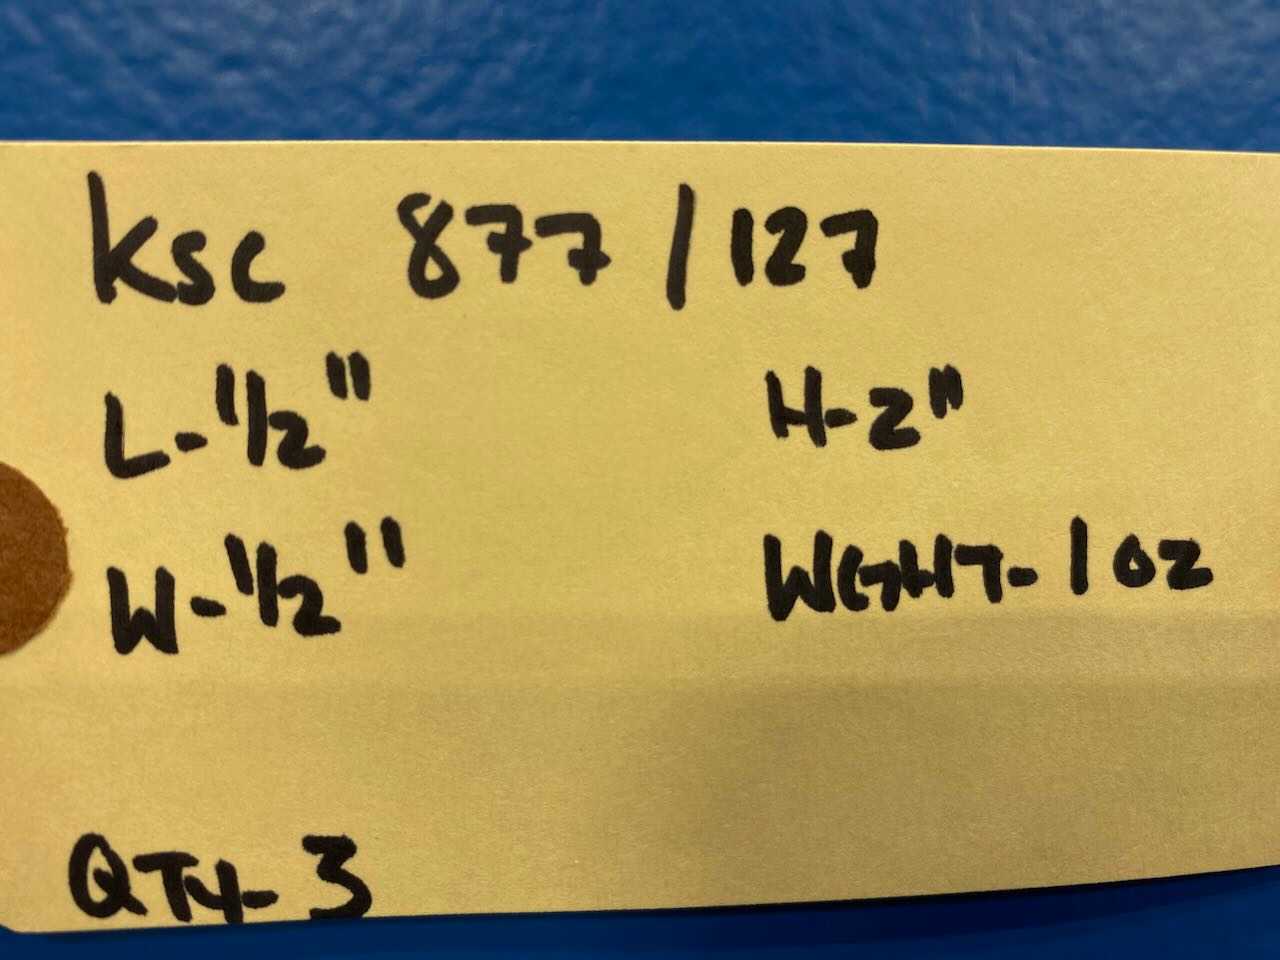 KSC 877/127
L-1/2" H-2"
W-1/2" WGHT-1 OZ
QTY-3